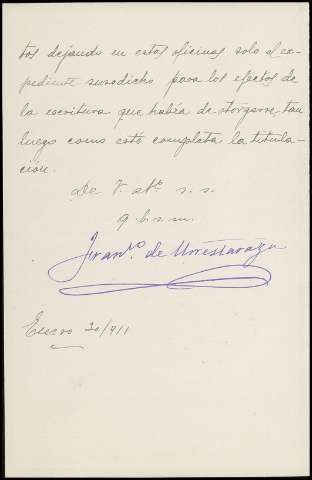 tos dejando en estas oficinas solo el ex-
pediente susodicho para los efectos de
la escritura que había de otorgarse tan
luego como esté completa la titula-
ción.
De V. atº. s. s.
q. b. s. m.
Franº. de Urrestarazu
Enero 30/911